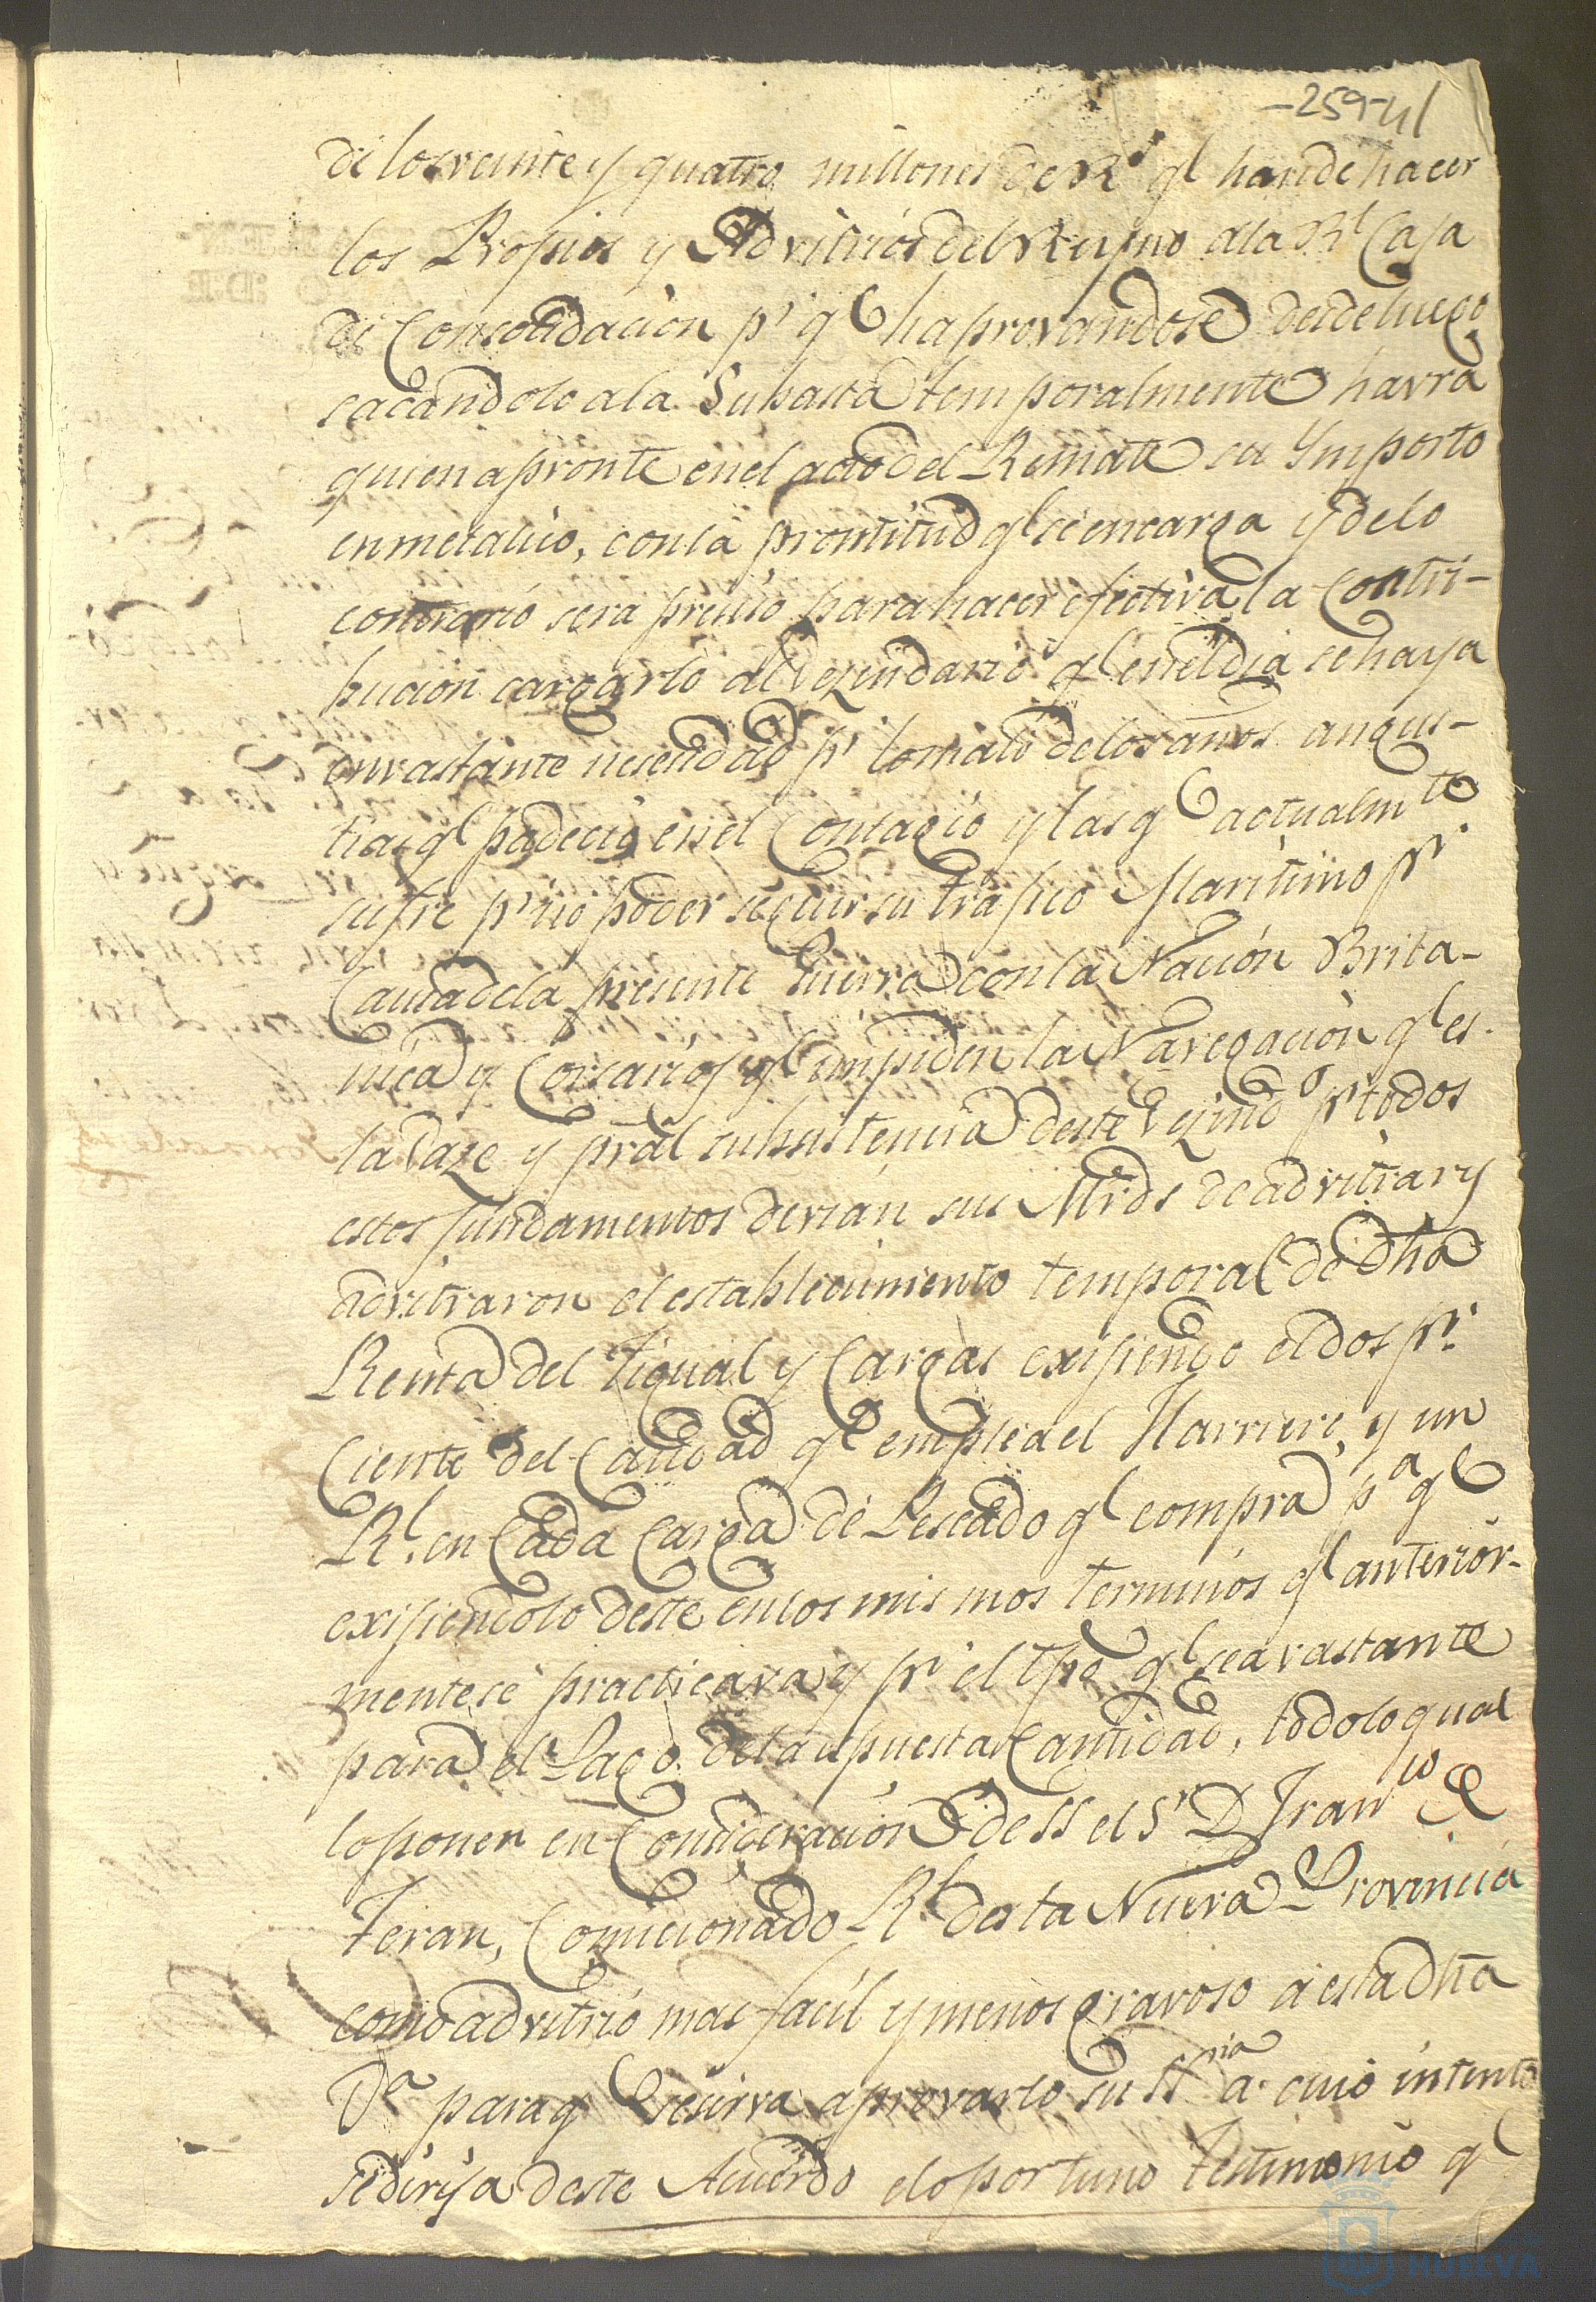 -259-41
de los veinte y quatro millones de Rs. qe han de hacer
los Propios y Advitrios del Reyno a la Rl Caja
de Consolidación pr qe haprovandose desde luego
sacandolo ala Subasta temporalmente havra
quien apronte en el acto del Remate su Ymporte
en metalico, con la prontitud qe se encarga y delo
contrario sera preciso para hacer efectiva la Contri-
bucion cargarlo al Vezindario qe en el dia se haya
en vastante nesecidad pr lo malo delos años angus-
tias qe padeció en el Contagio y las qe actualmte
sufre pr no poder seguir su trafico Maritimo pr
Causa dela presente Guerra con la Nación Brita-
nica y Corsarios qe impiden la Navegación qe es
la vaze y pral subsistencia deste Vezindo pr todos
estos fundamentos devian sus Mrds de advitrar y
advitraron el establecimiento temporal de dha
Renta del Tigual y Cargas exisiendo el dos pr
Ciento del Caudal qe emplea el Harriero, y un
Rl. en Cada Carga de Pescado qe compra pa qe
exisiendolo deste en los mismos terminos qe anterior-
mente se practicava y pr el tpo qe sea vastante
para el Pago dela espuesta Cantidad, todo lo qual
lo ponen en Concideración de SS el Sr D Franco de
Teran, Comicionado Rl desta Nueva Provincia
como advitrio mas facil y menos gravoso a esta dha
Va para qe se sirva aprovarlo su SSria a cuio intento
se dirija deste Acuerdo el oportuno Testimonio qe
HUELVA